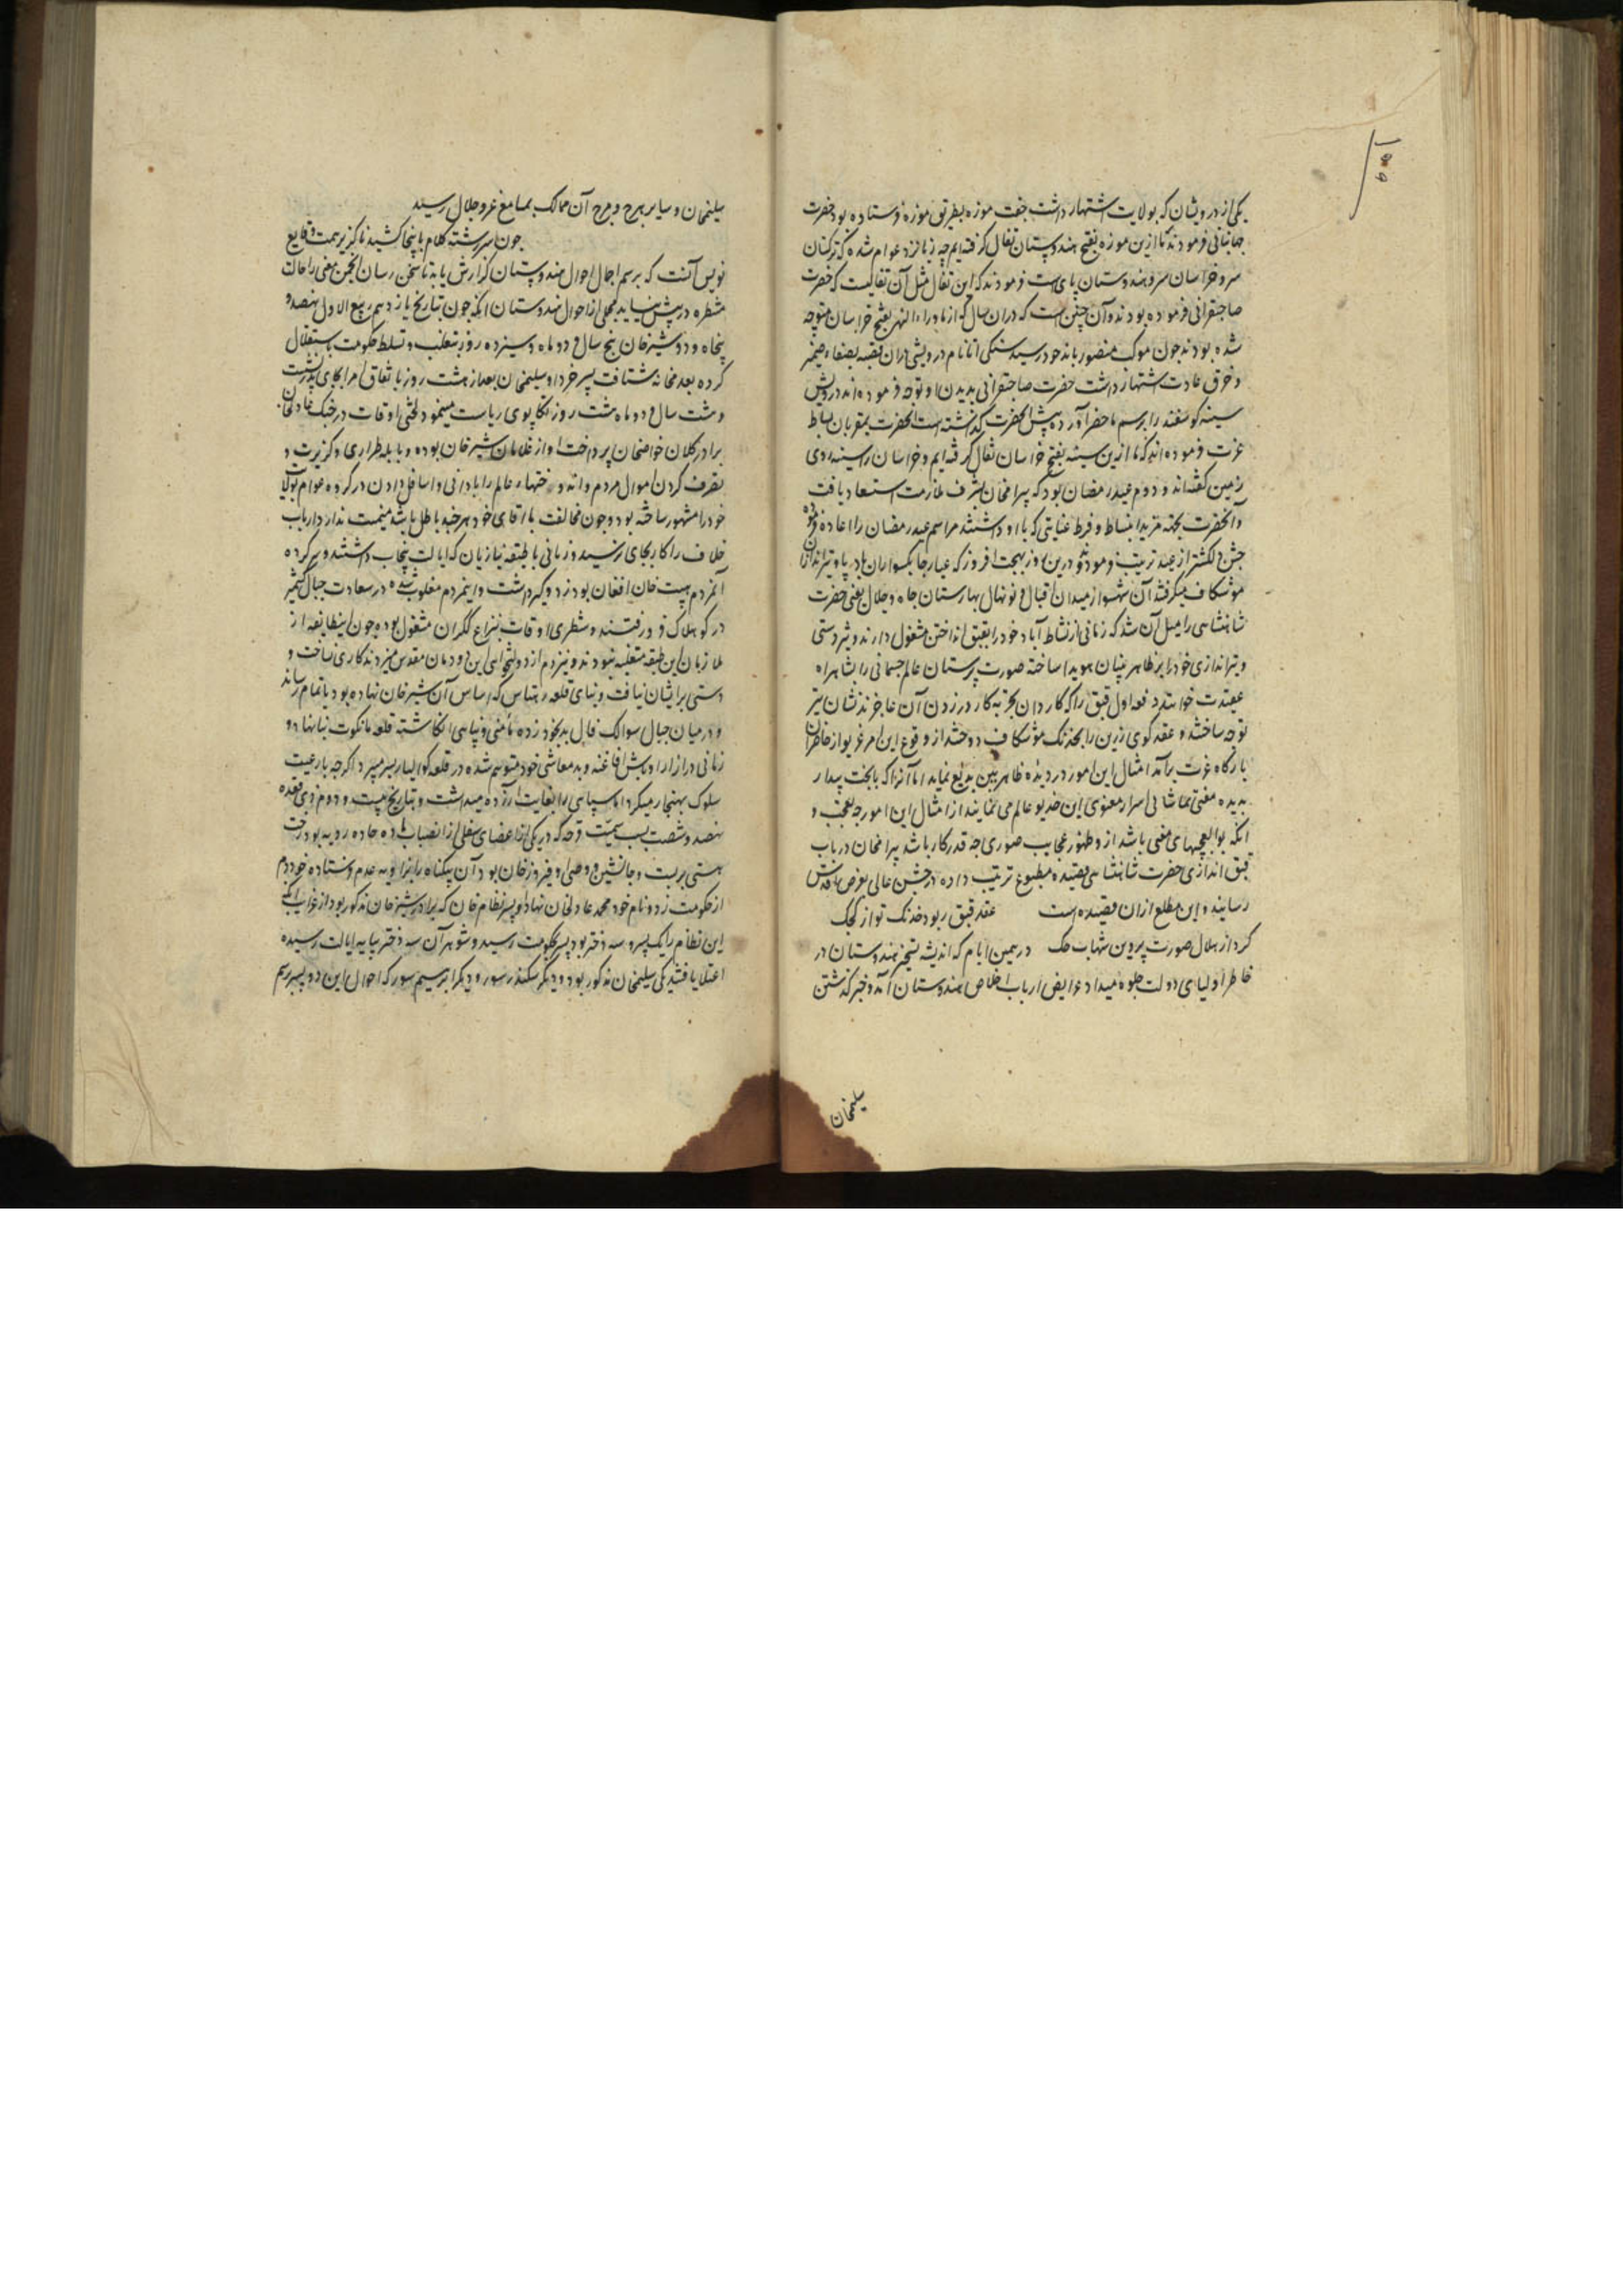 یکی از درویشان که بولایت اشتهار داشت جفت موزه بطریق موزه فرستاده بود حضرت
جهانبانی فرمودند که ما ازین موزه بفتح هندوستان تفأل گرفته ایم چه زبانزد عوام شده که ترکستان
سر و خراسان سر و هندوستان پای است فرمودند که این تفأل مثل آن تفالیست که حضرت
صاحبقرانی فرموده بودند و آن چنین است که در آن سال که از ماوراء النهر بفتح خراسان متوجه
شده بودند چون موکب منصور باندخود رسید سنگی اتا نام درویشی در آن قصبه بصفاء ضمیر
و خرق عادت اشتهار داشت حضرت صاحبقرانی بدیدن او توجه فرموده اند درویش
سینه گوسفند را برسم ماحضر آورده پیش آنحضرت گذشته است آنحضرت بمقربان بساط
عزت فرموده اند که ما ازین سینه بفتح خراسان تفأل گرفته ایم و خراسان را سینه روی
زمین گفته اند و دوم عید رمضان بود که بیرامخان بشرف ملازمت استسعاد یافت
و آنحضرت بجهة مزید انبساط و فرط عنایتی که با او داشتند مراسم عید رمضان را اعاده فرموده
جشن دلکشتر از عید ترتیب فرمودند و درین روز بهجت افروز که عیار چابکسواران باد پا و تیراندازان
موشکاف میگرفتند آن شهسوار میدان اقبال و نونهال بهارستان جاه و جلال یعنی حضرت
شاهنشاهی را میل آن شد که زمانی از نشاط آباد خود را بقبق انداختن مشغول دارند و تیر دستی
و تیراندازی خود را بر ظاهر بینان هویدا ساخته صورت پرستان عالم جسمانی را بشاهراه
عقیدت خوانند دفعه اول قبق را که کاردانان تجربه کار در زدن آن عاجزند نشان تیر
توجه ساختند و عقد گوی زرین را بخدنک موشکاف دوختند از وقوع این امر غریو از حاظران
بارگاه عزت برآمد امثال این امور در دیده ظاهر بین بدیع نماید اما آنرا که با بخت بیدار
بدیده معنی تماشائی اسرار معنوی این خدیو عالم می نمایند از امثال این امور چه تعجب و
آنکه بوالعجبیهای معنی باشد از و ظهور عجایب صوری چه قدر کار باشد بیرامخان در باب
قبق اندازی حضرت شاهنشاهی قصیده مطبوع ترتیب داده در جشن عالی بعرض اقدس
رسانید و این مطلع از ان قصیده است عقد قبق ربود خدنک تو از کجک
کرد از هلال صورت پروین شهاب حک در همین ایام که اندیشه تسخیر هندوستان در
خاطر اولیای دولت جلوه میداد عرایض ارباب اخلاص هندوستان آمد و خبر گذشتن
سلیمخان
سلیمخان و سایر هرج و مرج آن ممالک بمسامع عز و جلال رسید
چون سررشته کلام باینجا کشید ناگزیر همت وقایع
نویس آنست که برسم اجمال احوال هندوستان گزارش یابد تا سخن رسان انجمن معنی را حالت
منتظره در پیش نیاید مجملی از احوال هندوستان آنکه چون بتاریخ یازدهم ربیع الاول نهصد و
پنجاه و دو شیرخان پنج سال و دو ماه و سیزده روز بتغلب و تسلط حکومت باستقلال
کرده بعدمخانه شتافت پسر خرد او سلیمخان بعد از هشت روز باتفاق امرا بجای پدر نشست
و هشت سال و دو ماه هشت روز تکاپوی ریاست مینمود لختی اوقات در جنک عادلخان
برادر کلان خواصخان پرداخت او از غلامان شیرخان بوده و بابله طراری و گزیزیت و
تصرف کردن اموال مردم و اندوختهاء عالم را بادانی و اسافل دادن در گروه عوام بولایت
خود را مشهور ساخته بود و چون مخالفت با اقای خود هر چند باطل باشد میمنت ندارد ارباب
خلاف را کار بجای نرسید و زمانی با طبقه نیازیان که ایالت پنجاب داشتند و سرکرده
آنمردم هیبت خان افغان بود زد و گیر داشت و اینمردم مغلوب شده در سعادت جبال کشمیر
در گو هلاک فرو رفتند و شطری اوقات بنزاع گکران مشغول بوده چون اینطایفه از
ملازمان این طبقه متغلبه نبودند و نیز دم از دولتخواهی این دودمان مقدس میزدند کاری نساخت و
دستی بر ایشان نیافت و بنای قلعه رهتاس که اساس آن شیرخان نهاده بود باتمام رساند
و در میان جبال سوالک فال بد بخود زده مامنی و پناهی انگاشته قلعه مانکوت بنا نهاد و
زمانی دراز از اوباش افاغنه و بدمعاشی خود متوهم شده در قلعه گوالیار بسر میبرد اگرچه با رعیت
سلوک بهنجار میکرد اما سپاهی را بغایت آزرده میداشت و بتاریخ بیست و دوم ذی قعده
نهصد و شصت بسبب سمیت قرحه که در یکی از اعضای سفلی از انصباب ماده حاده ردیه بود رخت
هستی بربست و جانشین و وصی او فیروزخان بود آن بیگناه را بزاویه عدم فرستاده خود دم
از حکومت زد و نام خود محمد عادلخان نهاد او پسر نظام خان که برادر شیرخان مذکور بود از غرایب آنکه
این نظام را یک پسر و سه دختر بود پسر بحکومت رسید و شوهر آن سه دختر بپایه ایالت رسیده
اعتلا یافتند یکی سلیمخان مذکور بود و دیگر سکندر سور و دیگر ابراهیم سور که احوال این دو پسر برسم